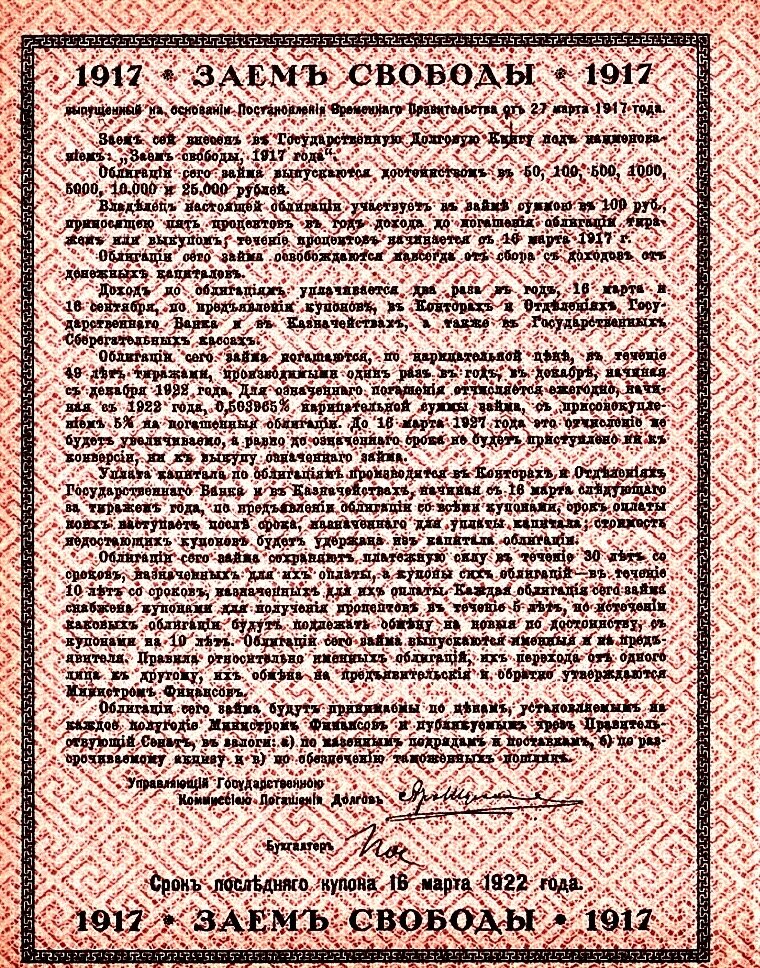 1917 * ЗАЕМЪ СВОБОДЫ * 1917
выпущенный на основаніи Постановленія Временнаго Правительства отъ 27 марта 1917 года.
Заемъ сей внесенъ въ Государственную Долговую Книгу подъ наименова-
ніемъ: „Заемъ свободы, 1917 года“.
Облигаціи сего займа выпускаются достоинствомъ въ 50, 100, 500, 1000,
5000, 10.000 и 25.000 рублей.
Владѣлецъ настоящей облигаціи участвуетъ въ займѣ суммою въ 100 руб.,
приносящею пять процентовъ въ годъ дохода до погашенія облигаціи тира-
жемъ или выкупомъ; теченіе процентовъ начинается съ 16 марта 1917 г.
Облигаціи сего займа освобождаются навсегда отъ сбора съ доходовъ отъ
денежныхъ капиталовъ.
Доходъ по облигаціямъ уплачивается два раза въ годъ, 16 марта и
16 сентября, по предъявленіи купоновъ, въ Конторахъ и Отдѣленіяхъ Госу-
дарственнаго Банка и въ Казначействахъ, а также въ Государственныхъ
Сберегательныхъ кассахъ.
Облигаціи сего займа погашаются, по нарицательной цѣнѣ, въ теченіе
49 лѣтъ тиражами, производимыми одинъ разъ въ годъ, въ декабрѣ, начиная
съ декабря 1922 года. Для означеннаго погашенія отчисляется ежегодно, начи-
ная съ 1922 года, 0,503965% нарицательной суммы займа, съ присовокупле-
ніемъ 5% на погашенныя облигаціи. До 16 марта 1927 года это отчисленіе не
будетъ увеличиваемо, а равно до означеннаго срока не будетъ приступлено ни къ
конверсіи, ни къ выкупу означеннаго займа.
Уплата капитала по облигаціямъ производится въ Конторахъ и Отдѣленіяхъ
Государственнаго Банка и въ Казначействахъ, начиная съ 16 марта слѣдующаго
за тиражемъ года, по предъявленіи облигаціи со всѣми купонами, срокъ оплаты
коихъ наступаетъ послѣ срока, назначеннаго для уплаты капитала; стоимость
недостающихъ купоновъ будетъ удержана изъ капитала облигаціи.
Облигаціи сего займа сохраняютъ платежную силу въ теченіе 30 лѣтъ со
сроковъ, назначенныхъ для ихъ оплаты, а купоны сихъ облигацій—въ теченіе
10 лѣтъ со сроковъ, назначенныхъ для ихъ оплаты. Каждая облигація сего займа
снабжена купонами для полученія процентовъ въ теченіе 5 лѣтъ, по истеченіи
каковыхъ облигаціи будутъ подлежать обмѣну на новыя по достоинству, съ
купонами на 10 лѣтъ. Облигаціи сего займа выпускаются именныя и на предъ-
явителя. Правила относительно именныхъ облигацій, ихъ перехода отъ одного
лица къ другому, ихъ обмѣна на предъявительскія и обратно утверждаются
Министромъ Финансовъ.
Облигаціи сего займа будутъ принимаемы по цѣнамъ, установляемымъ на
каждое полугодіе Министромъ Финансовъ и публикуемымъ чрезъ Правитель-
ствующій Сенатъ, въ залоги: а) по казеннымъ подрядамъ и поставкамъ, б) по раз-
срочиваемому акцизу и в) по обезпеченію таможенныхъ пошлинъ.
Управляющій Государственною
Комиссіею Погашенія Долговъ
Бухгалтеръ
Срокъ послѣдняго купона 16 марта 1922 года.
1917 * ЗАЕМЪ СВОБОДЫ * 1917